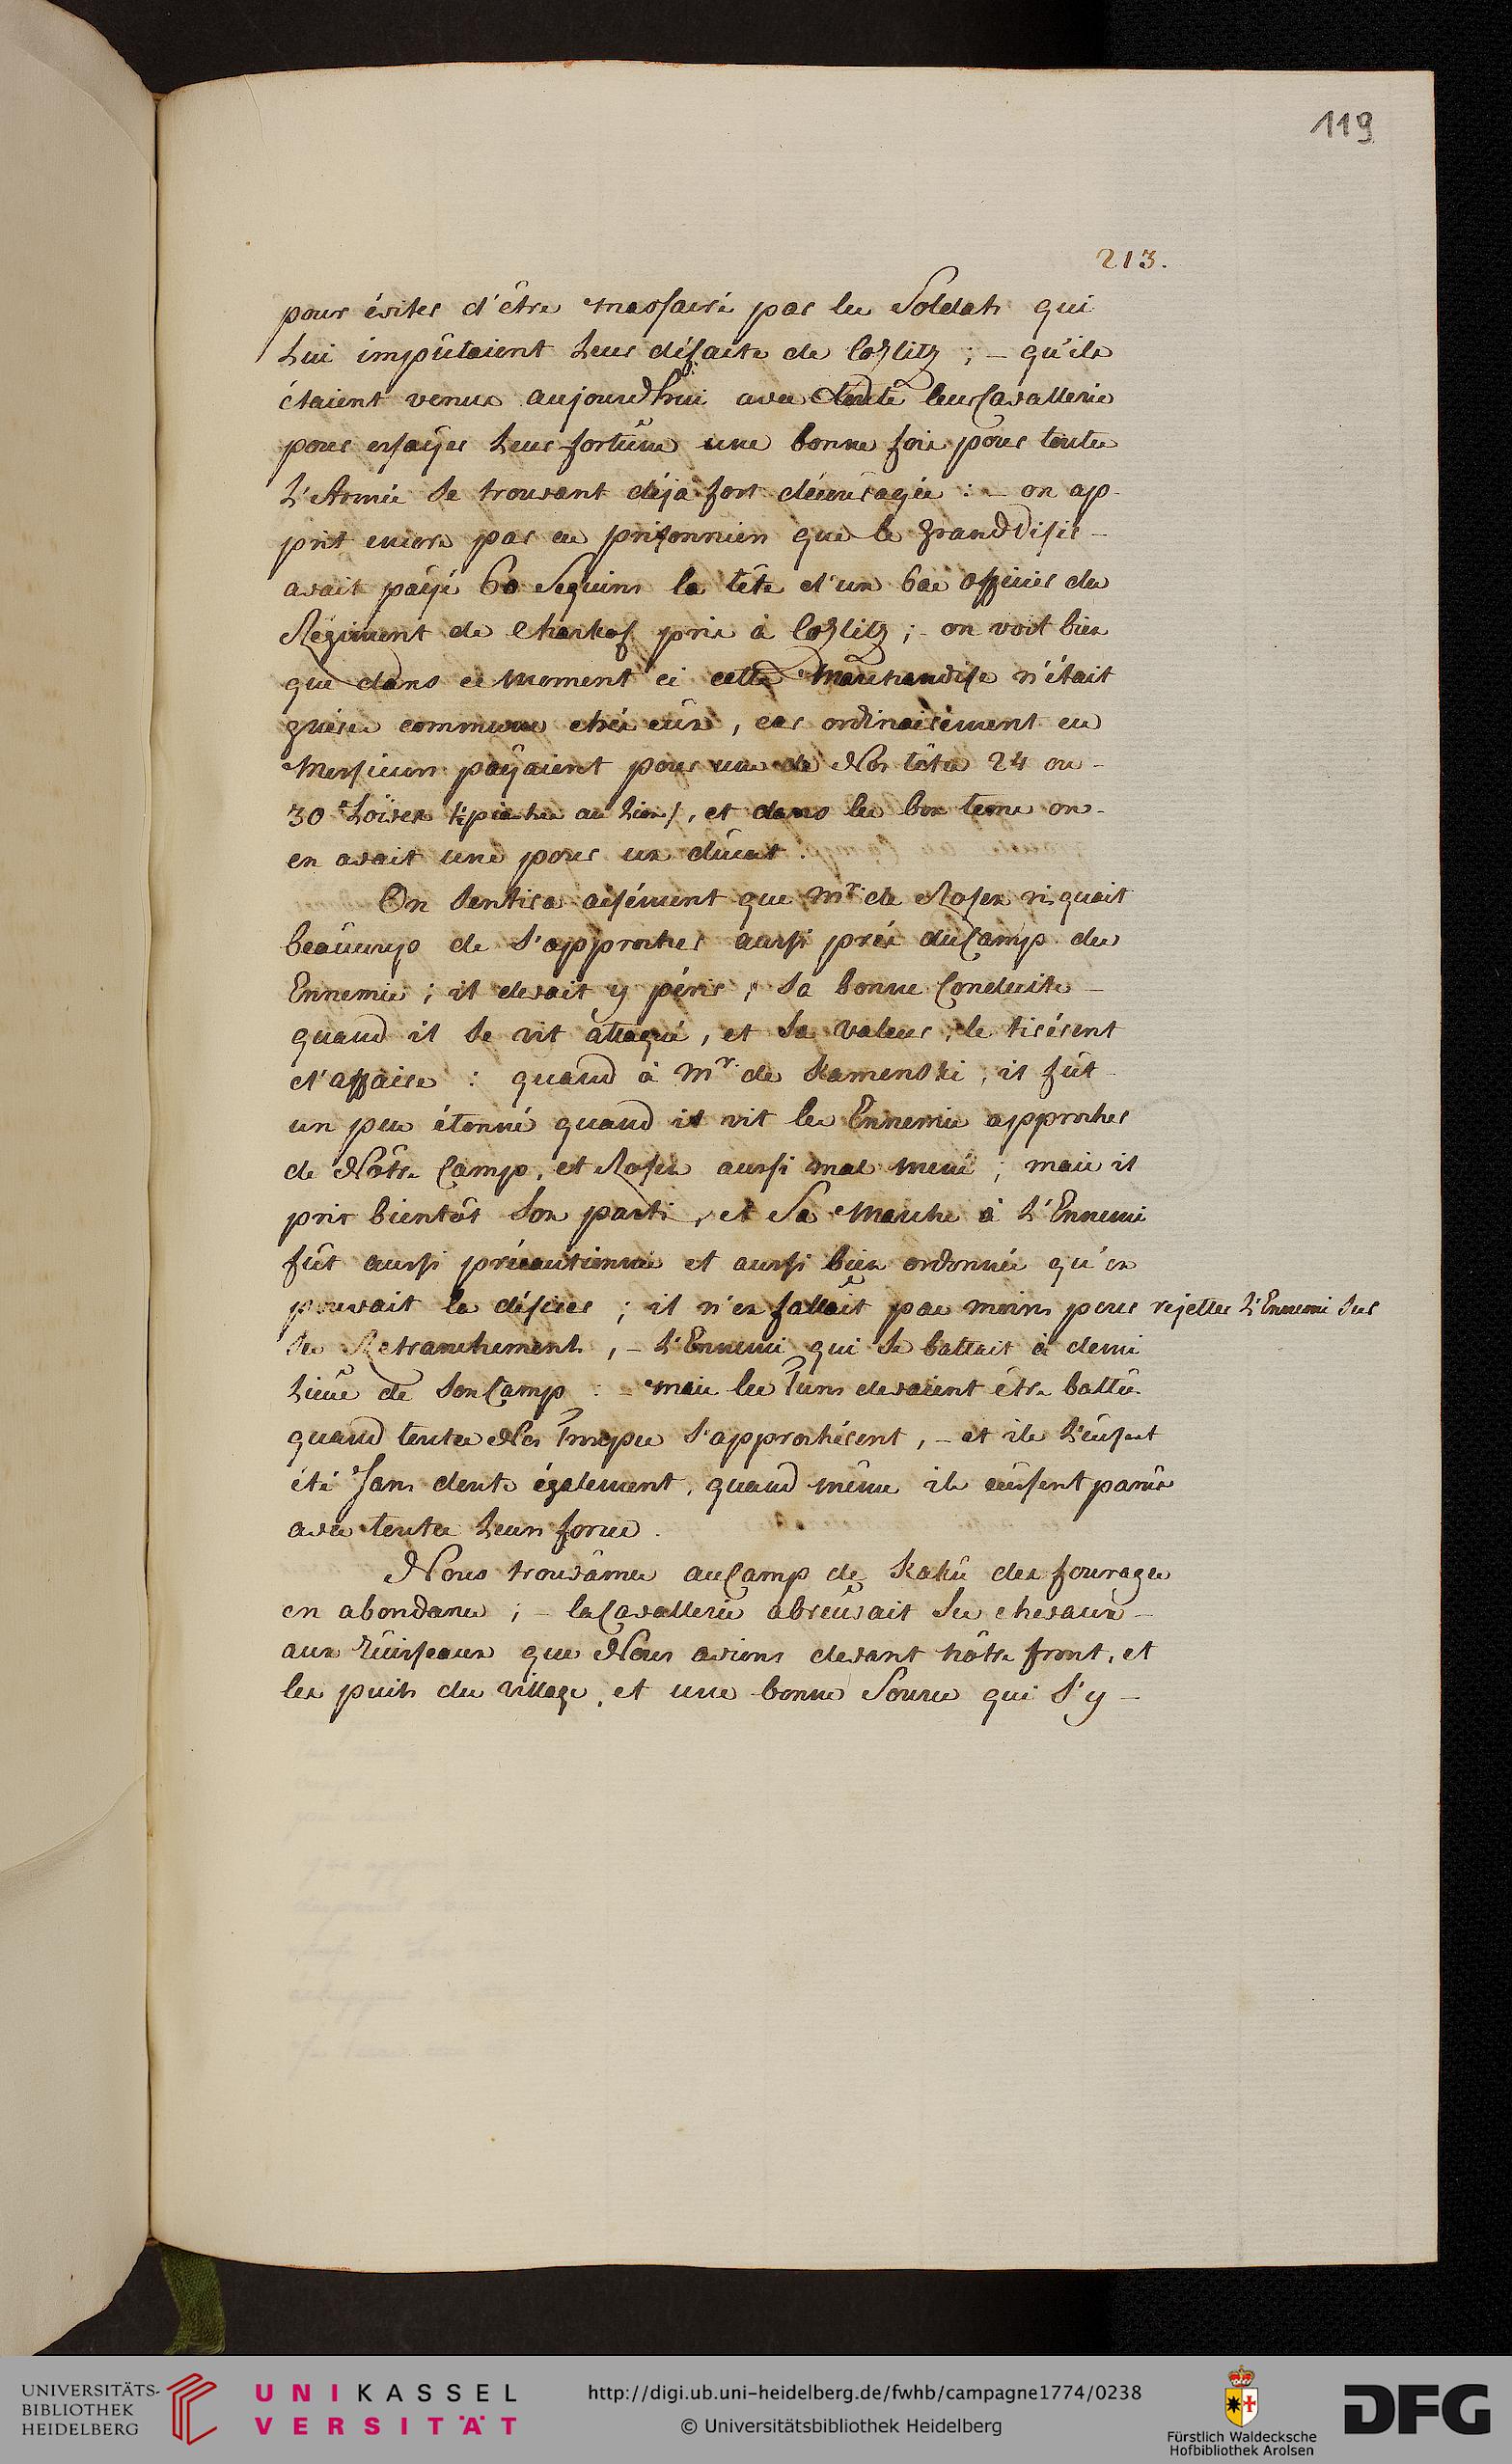 119
213.
pour éviter d'être massacré par les Soldats qui
Lui impûtaient Leur défaite de Cozlitz ; – qu'ils
étaient venus aujourd'hui avec toute leur Cavallerie
pour essayer Leur fortune une bonne fois pour toutes
L'Armée Se trouvant déja fort découragée : – on ap-
prit encore par ces prisonniers que le Grand Visir –
avait payé 60 Sequins la tête d'un bas officier du
Régiment de Charkof pris à Cozlitz ; – on voit bien
que dans ce Moment ci cette Marchandise n'était
guère commune chés eux, car ordinairement ces
Messieurs payaient pour une de Nos têtes 24 ou –
30 au Lion/, et dans le bon tems on –
en avait une pour un ducat.
On Sentira aisément que Mr. de Rosen risquait
beaucoup de S'approcher aussi près du Camp des
Ennemis ; il devait y périr ; Sa bonne Conduite –
quand il Se vit attaqué, et Sa Valeur, le tirèrent
d'affaire : quand à Mr. de Kamenski, il fût –
un peu étonné quand il vit les Ennemis approcher
de Nôtre Camp, et Rosen aussi mal mené ; mais il
prit bientôt Son parti, et Sa Marche à L'Ennemi
fût aussi précautionnée et aussi bien ordonnée qu'on
pouvait la désirer ; il n'en fallait pas moins pour rejetter L'Ennemi Sur
Ses Retranchements, – L'Ennemi qui Se battait à demi
Lieüe de Son Camp : – mais les Turcs devaient être battûs
quand toutes Nos Troupes S'approchèrent, – et ils L'eussent
été Sans doute également, quand même ils eussent parûs
avec toutes Leurs forces.
Nous trouvâmes au Camp de Kakû des fourages
en abondance ; – la Cavallerie abreuvait Ses chevaux –
aux Ruisseaux que Nous avions devant nôtre front, et
les puits du Village, et une bonne Source qui S'y –
UNIVERSITÄTS-
BIBLIOTHEK
HEIDELBERG
UNIKASSEL
VERSITÄT
http://digi.ub.uni-heidelberg.de/fwhb/campagne1774/0238
© Universitätsbibliothek Heidelberg
Fürstlich Waldecksche
Hofbibliothek Arolsen
DFG